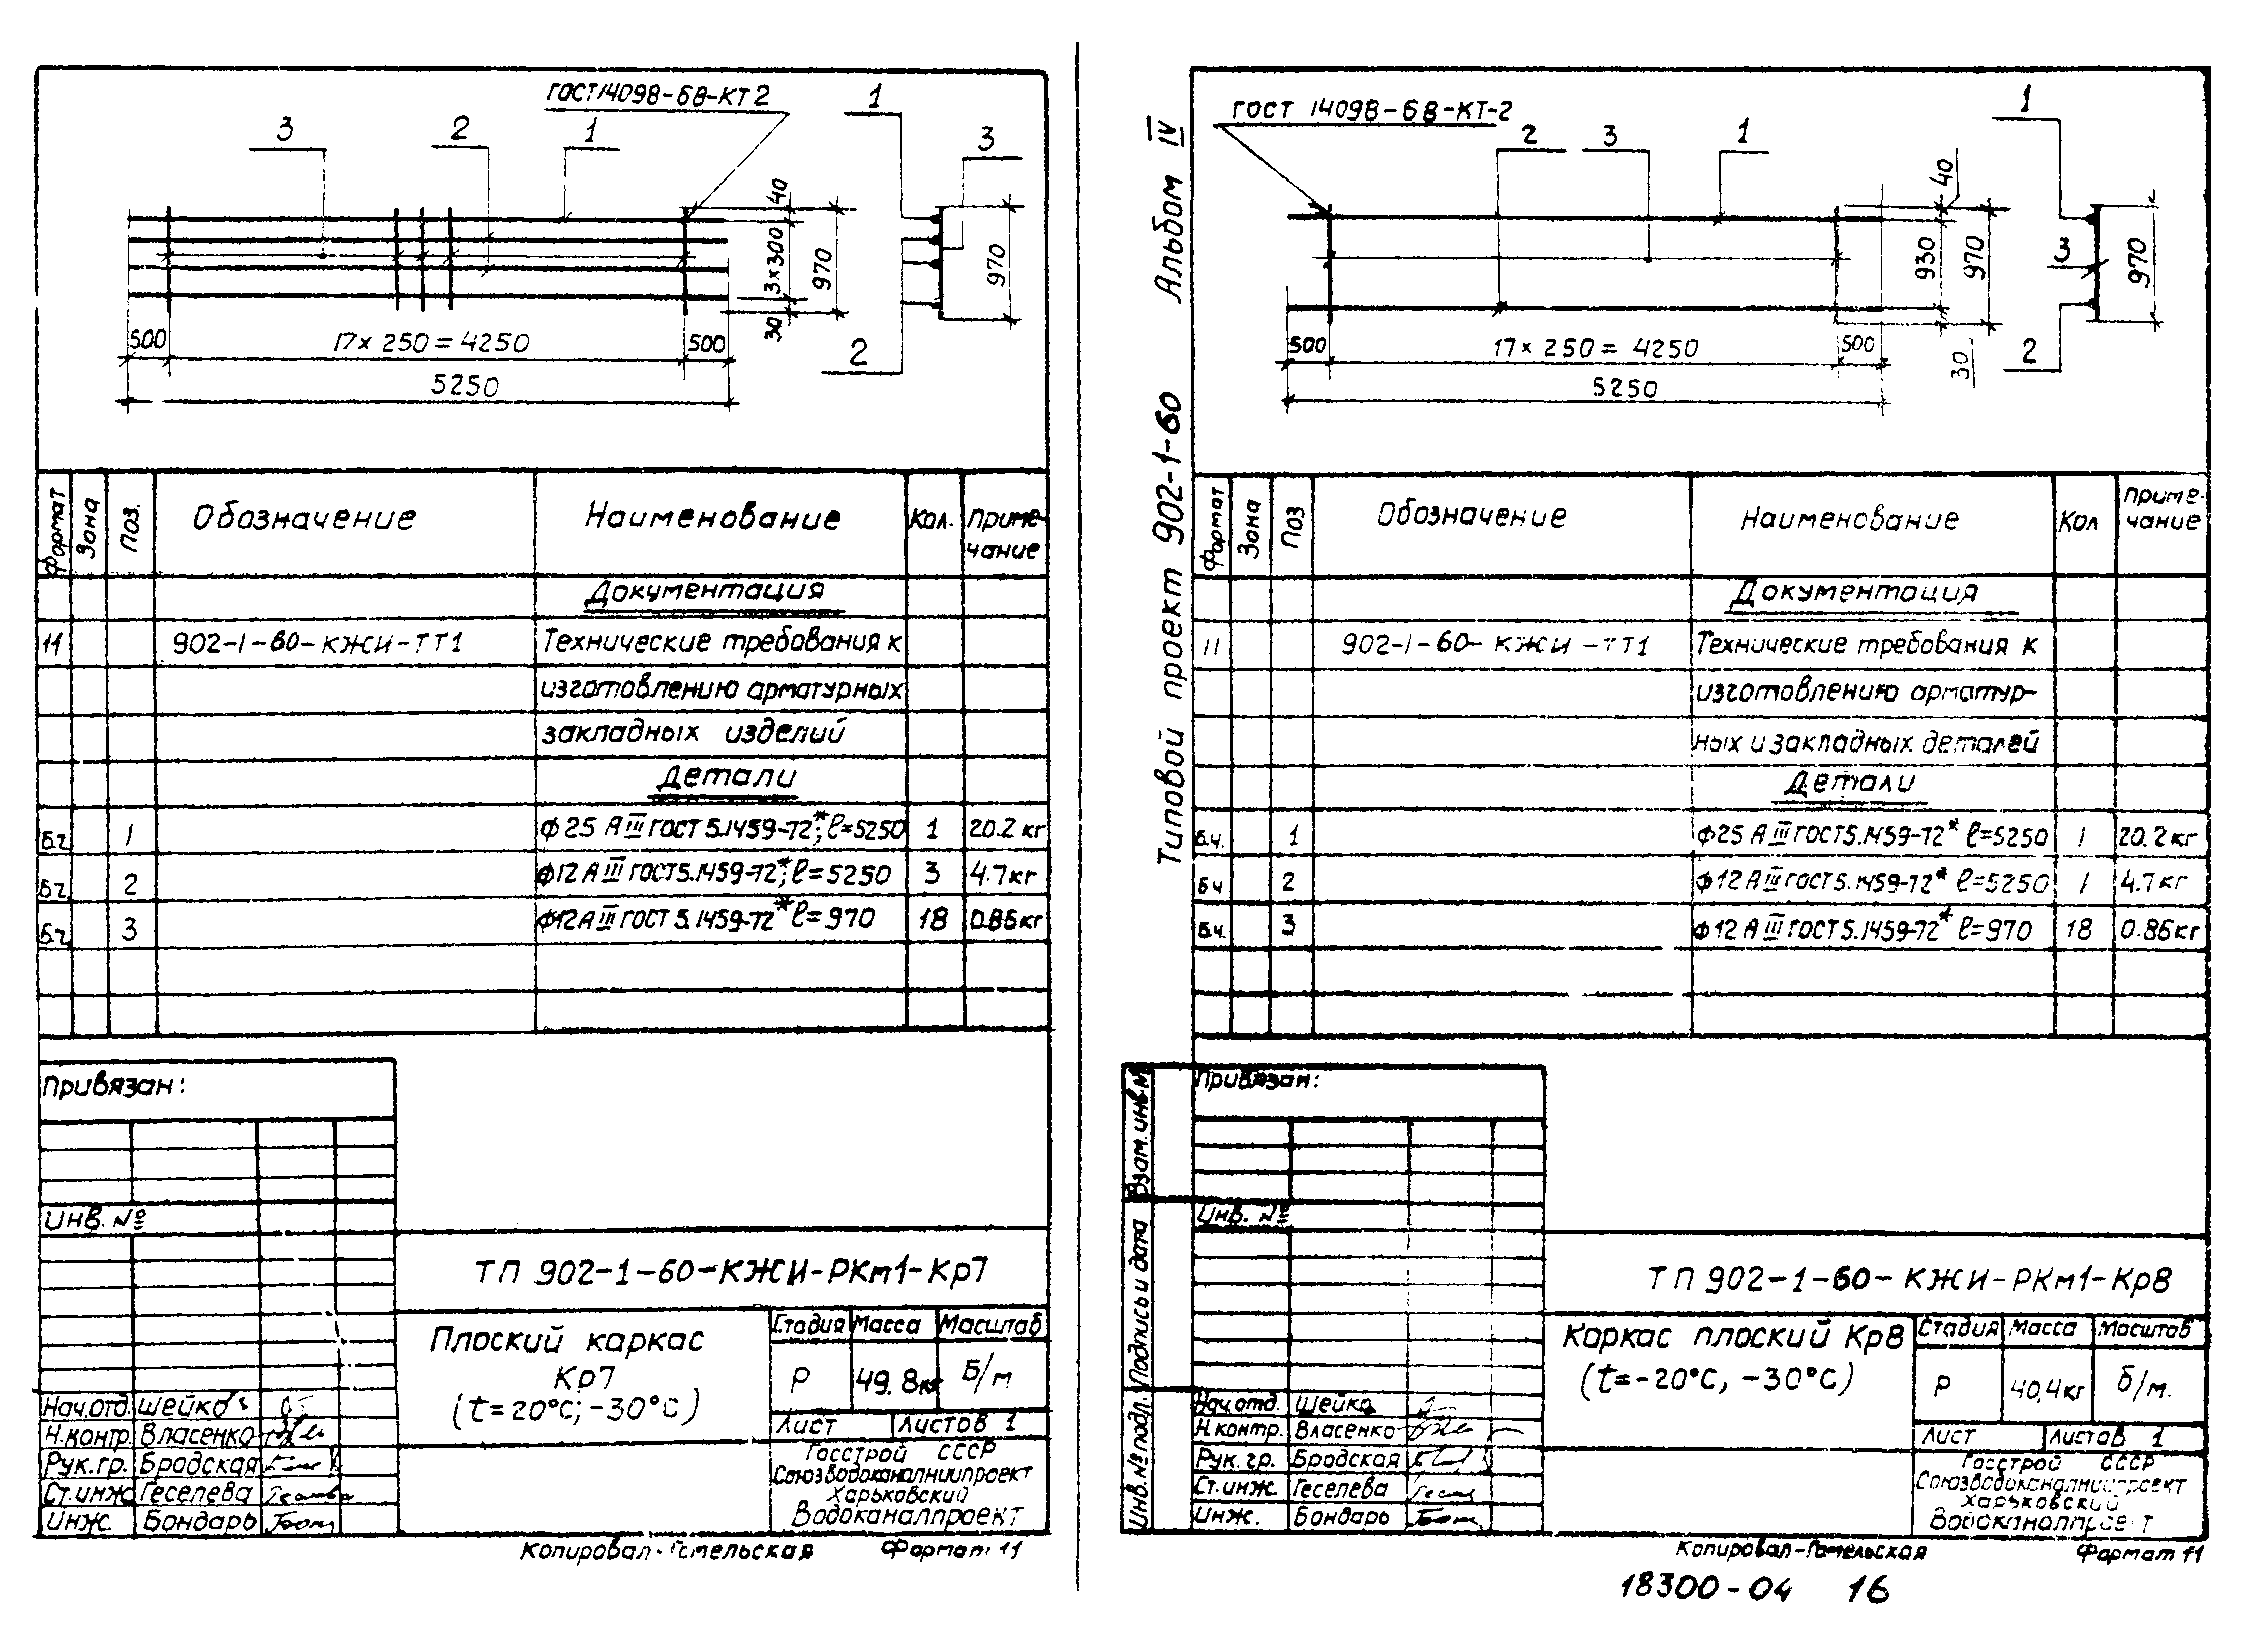 ГОСТ14098-68-КТ2
3
2
1
1
3
2
40
3×300
30
970
970
500
17×250=4250
500
5250
Формат
Зона
Поз.
Обозначение
Наименование
Кол.
Приме-
чание
Документация
11
902-1-60-КЖИ-ТТ1
Технические требования к
изготовлению арматурных
закладных изделий
Детали
Б.ч
1
ф25 АIII ГОСТ 5.1459-72*; ℓ=5250
1
20.2 кг
Б.ч
2
ф12 АIII ГОСТ 5.1459-72*; ℓ=5250
3
4.7 кг
Б.ч
3
ф12 АIII ГОСТ 5.1459-72* ℓ=970
18
0.86 кг
Привязан:
Инв. №
ТП 902-1-60-КЖИ-РКм1-Кр7
Плоский каркас
Кр7
(t=20°С; -30°С)
Стадия
Масса
Масштаб
Р
49.8кг
Б/м
Лист
Листов 1
Нач.отд. Шейко
Н.контр. Власенко
Рук.гр. Бродская
Ст.инж Геселева
Инж. Бондарь
Госстрой СССР
Союзводоканалниипроект
Харьковский
Водоканалпроект
Копировал-Гомельская
Формат 11
Типовой проект 902-1-60 Альбом IV
ГОСТ 14098-68-КТ-2
2
3
1
1
3
2
40
930
970
30
970
500
17×250=4250
500
5250
Формат
Зона
Поз
Обозначение
Наименование
Кол
Приме-
чание
Документация
11
902-1-60-КЖИ-ТТ1
Технические требования к
изготовлению арматур-
ных и закладных деталей
Детали
Б.ч.
1
ф25 АIII ГОСТ 5.1459-72* ℓ=5250
1
20.2 кг
Б.ч
2
ф12 АIII ГОСТ 5.1459-72* ℓ=5250
1
4.7 кг
Б.ч.
3
ф12 АIII ГОСТ 5.1459-72* ℓ=970
18
0.86 кг
Взам. инв. №
Подпись и дата
Инв. № подл.
Привязан:
Инв. №
ТП 902-1-60-КЖИ-РКм1-Кр8
Каркас плоский Кр8
(t=-20°С, -30°С)
Стадия
Масса
Масштаб
Р
40,4кг
б/м.
Лист
Листов 1
Нач.отд. Шейко
Н контр. Власенко
Рук.гр. Бродская
Ст.инж. Геселева
Инж. Бондарь
Госстрой СССР
Союзводоканалниипроект
Харьковский
Водоканалпроект
Копировал-Гомельская
Формат 11
18300-04 16